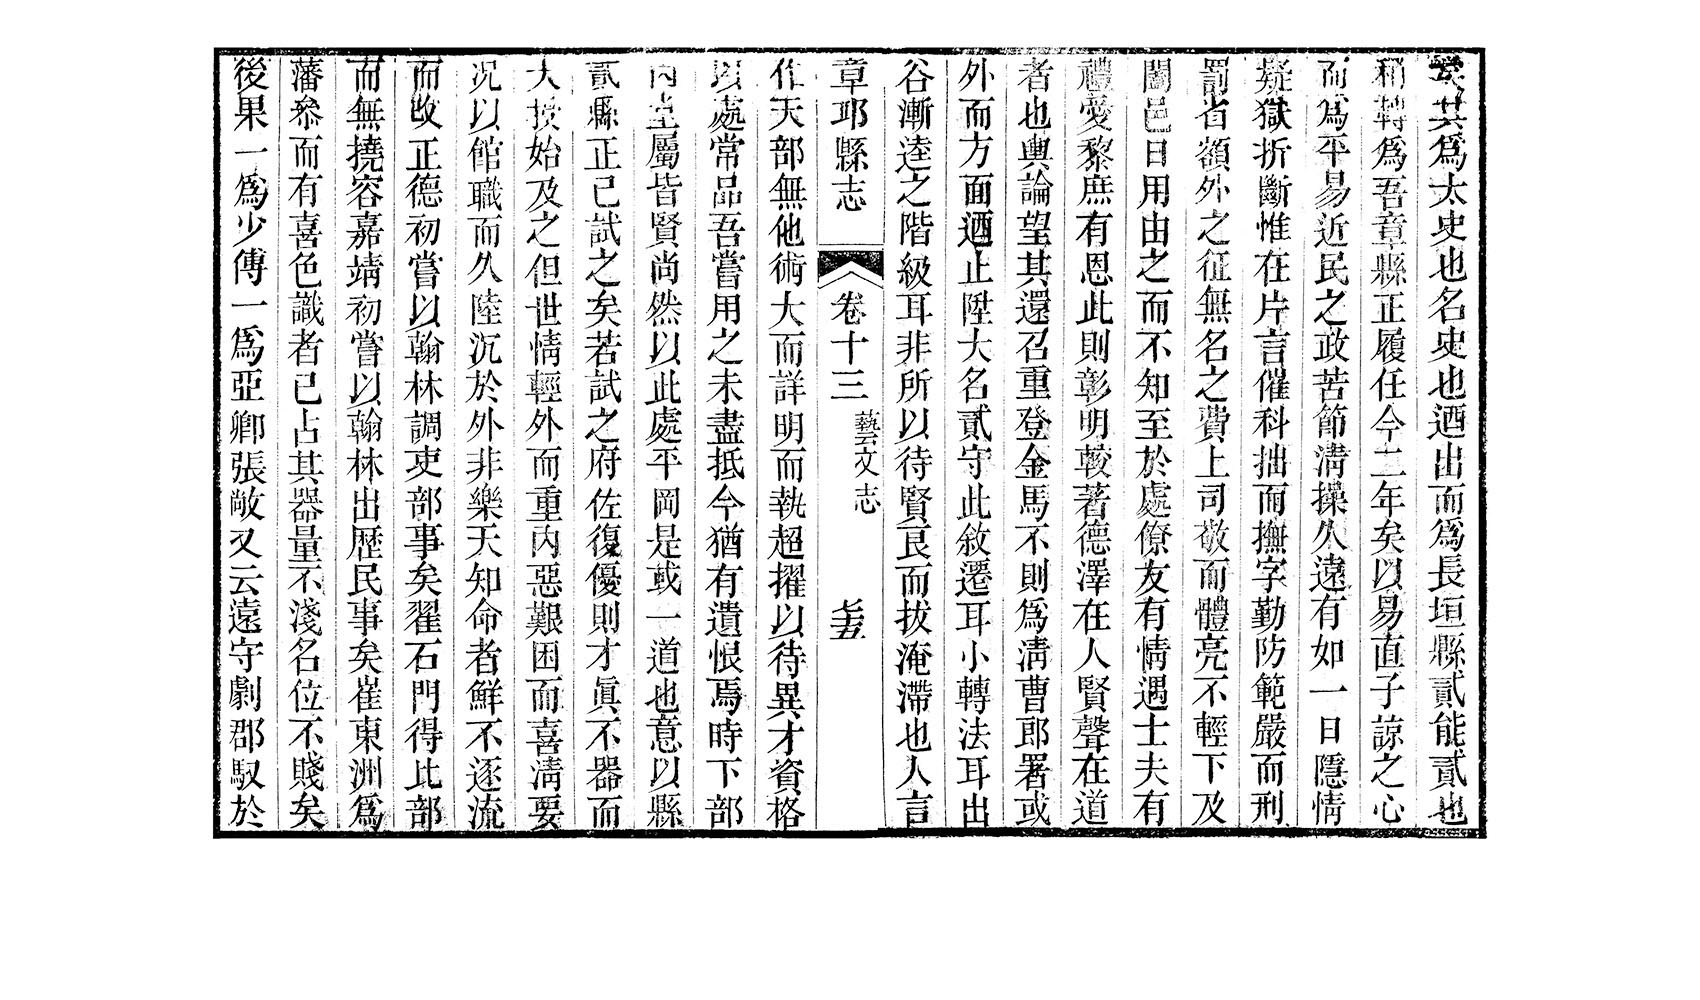 其爲太史也名史也迺出而爲長垣縣貳能貳也
稍轉爲吾章縣正履任今二年矣以易直子諒之心
而爲平易近民之政苦節清操久遠有如一日隱情
疑獄折斷惟在片言催科拙而撫字勤防範嚴而刑
罰省額外之征無名之費上司敬而體亮不輕下及
闔邑日用由之而不知至於處僚友有情遇士夫有
禮愛黎庶有恩此則彰明較著德澤在人賢聲在道
者也輿論望其還召重登金馬不則爲清曹郎署或
外而方面迺止陞大名貳守此敘遷耳小轉法耳出
谷漸逵之階級耳非所以待賢良而拔淹滯也人言
章邱縣志 卷十三 藝文志 七五
作天部無他術大而詳明而執超擢以待異才資格
以處常品吾嘗用之未盡抵今猶有遺恨焉時下部
內堂屬皆賢尚然以此處平岡是或一道也意以縣
貳縣正已試之矣若試之府佐復優則才眞不器而
大授始及之但世情輕外而重內惡艱困而喜清要
況以館職而久陸沉於外非樂天知命者鮮不逐流
而改正德初嘗以翰林調吏部事矣翟石門得比部
而無撓容嘉靖初嘗以翰林出歷民事矣崔東洲爲
藩參而有喜色識者已占其器量不淺名位不賤矣
後果一爲少傅一爲亞卿張敞又云遠守劇郡馭於